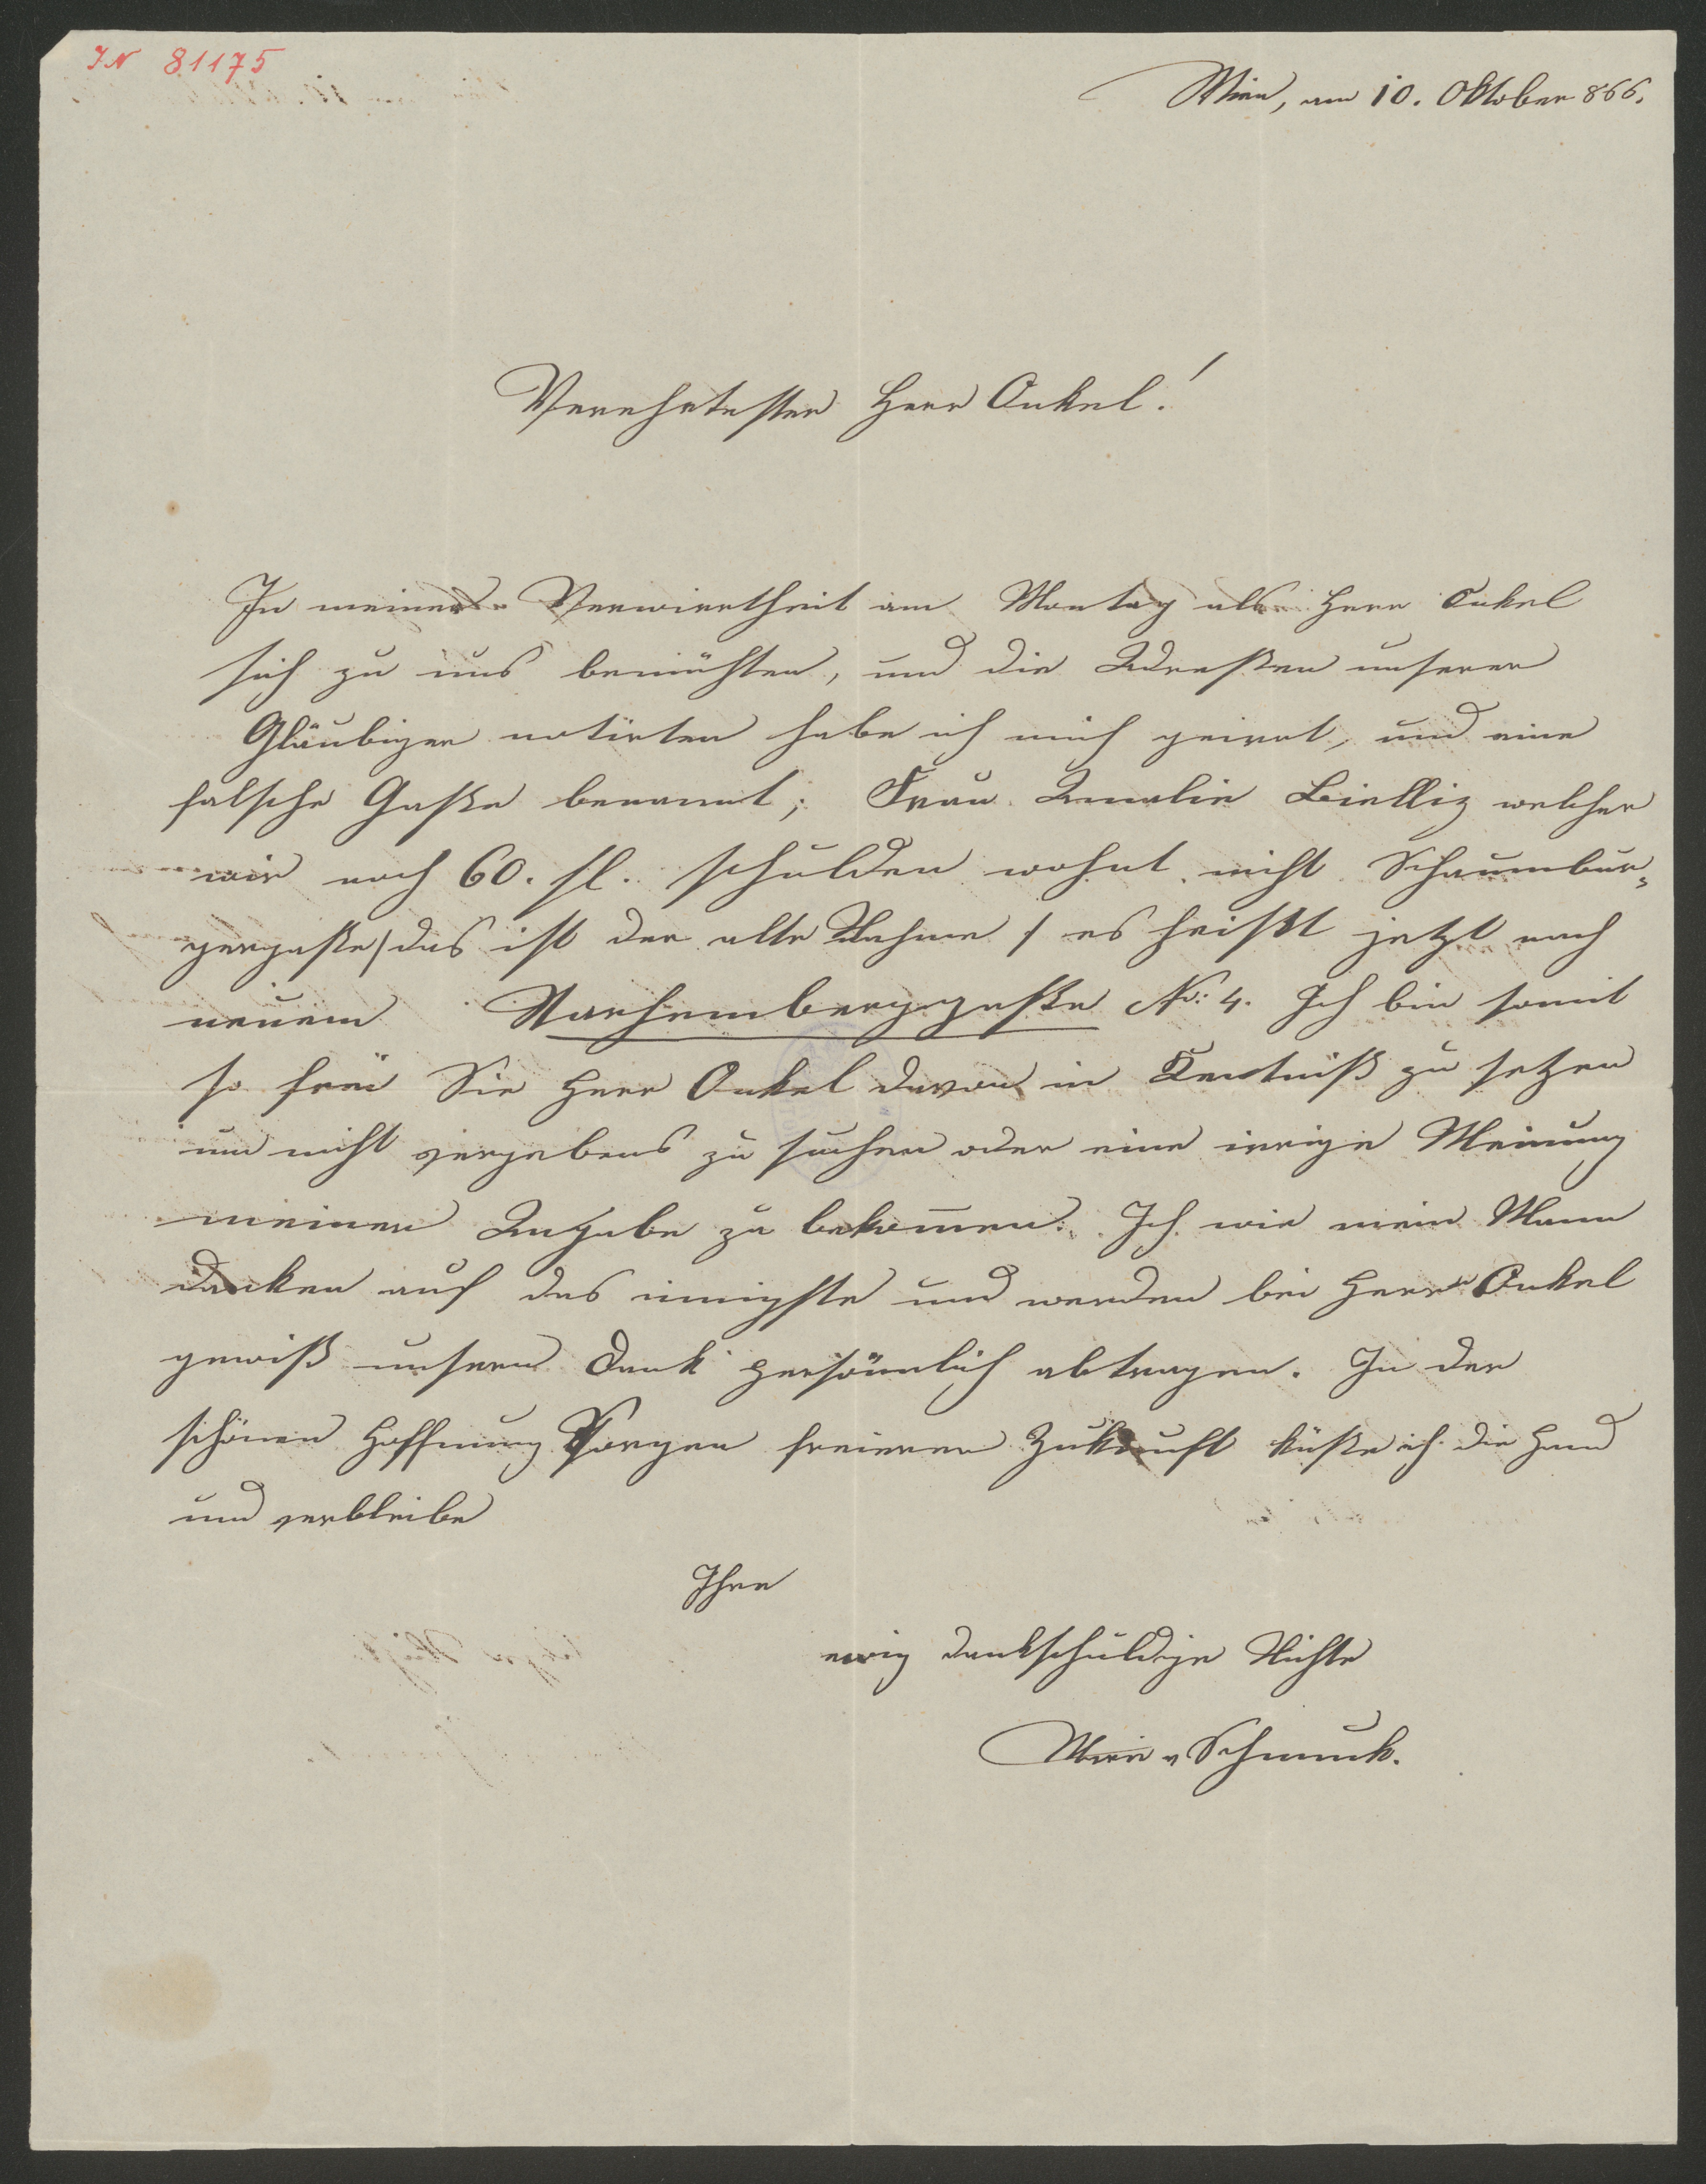 IN 81175
Wien, am 10. Oktober 866.
Verehrtester Herr Onkel!
In meiner Verwirrtheit am Montag als Herr Onkel
sich zu uns bemühten, und die Adreßen unserer
Gläubiger notirten habe ich mich geirrt, und eine
falsche Gaße benannt; Frau Amalie Bielliz welcher
wir noch 60. fl. schulden wohnt nicht Schaumbur„
gergaße / das ist der alte Nahme / es heißt jetzt nach
neuem Starhemberggaße No: 4. Ich bin somit
so frei Sie Herr Onkel davon in Kentniß zu setzen
um nicht vergebens zu suchen oder eine irrige Meinung
meiner Angabe zu bekom̄en. Ich wie mein Mann
danken auf das innigste und werden bei Herrn Onkel
gewiß unsern Dank persönnlich abtragen. In der
schönen Hoffnung Sorgen freierer Zukunft küße ich die Hand
und verbleibe
Ihre
ewig dankschuldige Nichte
Schmuck.